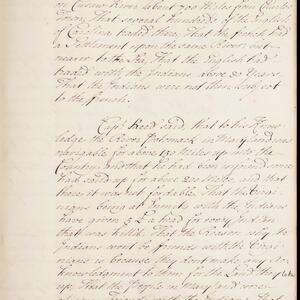 on Cusaw River about 700 Miles from Charles
Town, That several hundreds of the English
of Carolina traded there, That the French had
a Settlement upon the same River but
nearer to the Sea, That the English had
traded with the Indians above 20 Years
That the Indians were not then subject
to the French.
Capt. Reed said, that to his Know-
ledge the River Potomock in Maryland was
navigable for above 150 Miles up into the
Country, and that he had been informed some
had sail'd up for above 200 Miles and that
there it was not fordable. That the Virgi-
nians being at Enmity with the Indians
have given a head for every Indian
that was kill'd. That the Reason why the
Indians wont be friends with the Virgi-
nians is because they dont make any Ac-
knowledgment to them for the Land they take
up. That the People in Maryland were